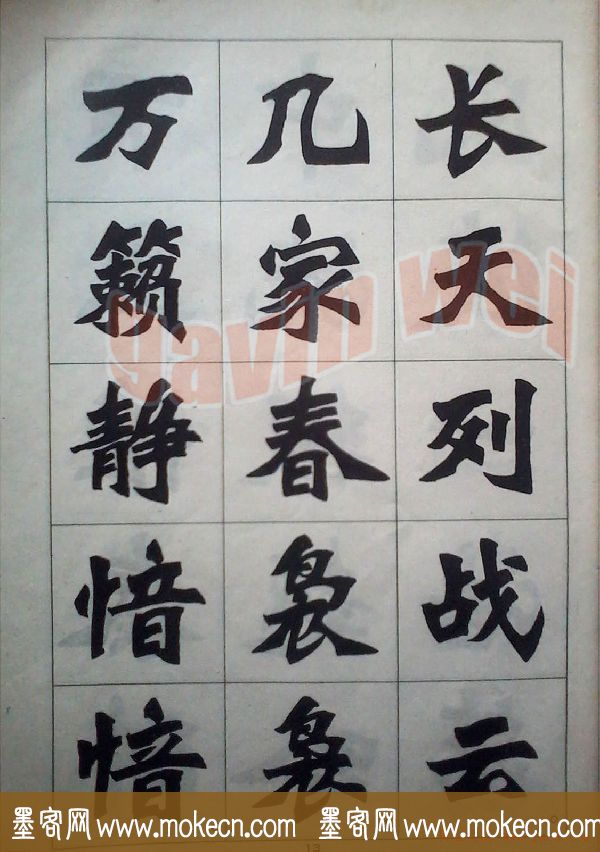 长天列战云
几家春袅袅
万籁静愔愔
gavin wei
墨客网 www.mokecn.com 墨客网 www.mokecn.com